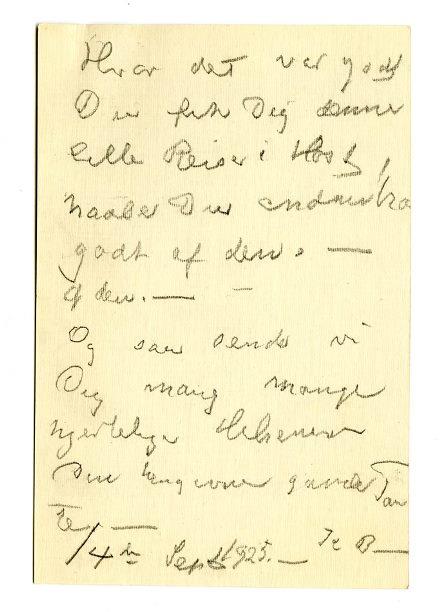 Hvor det var godt
Du fik Dig denne
lille Reise i Høst,
haaber Du endnu har
godt af den. —
af den. — —
Og saa sender vi
Dig mang mange
hjertelige Hilsener
Din hengivne gamle Tan
te —
14de Sept 1925. — Ie B —